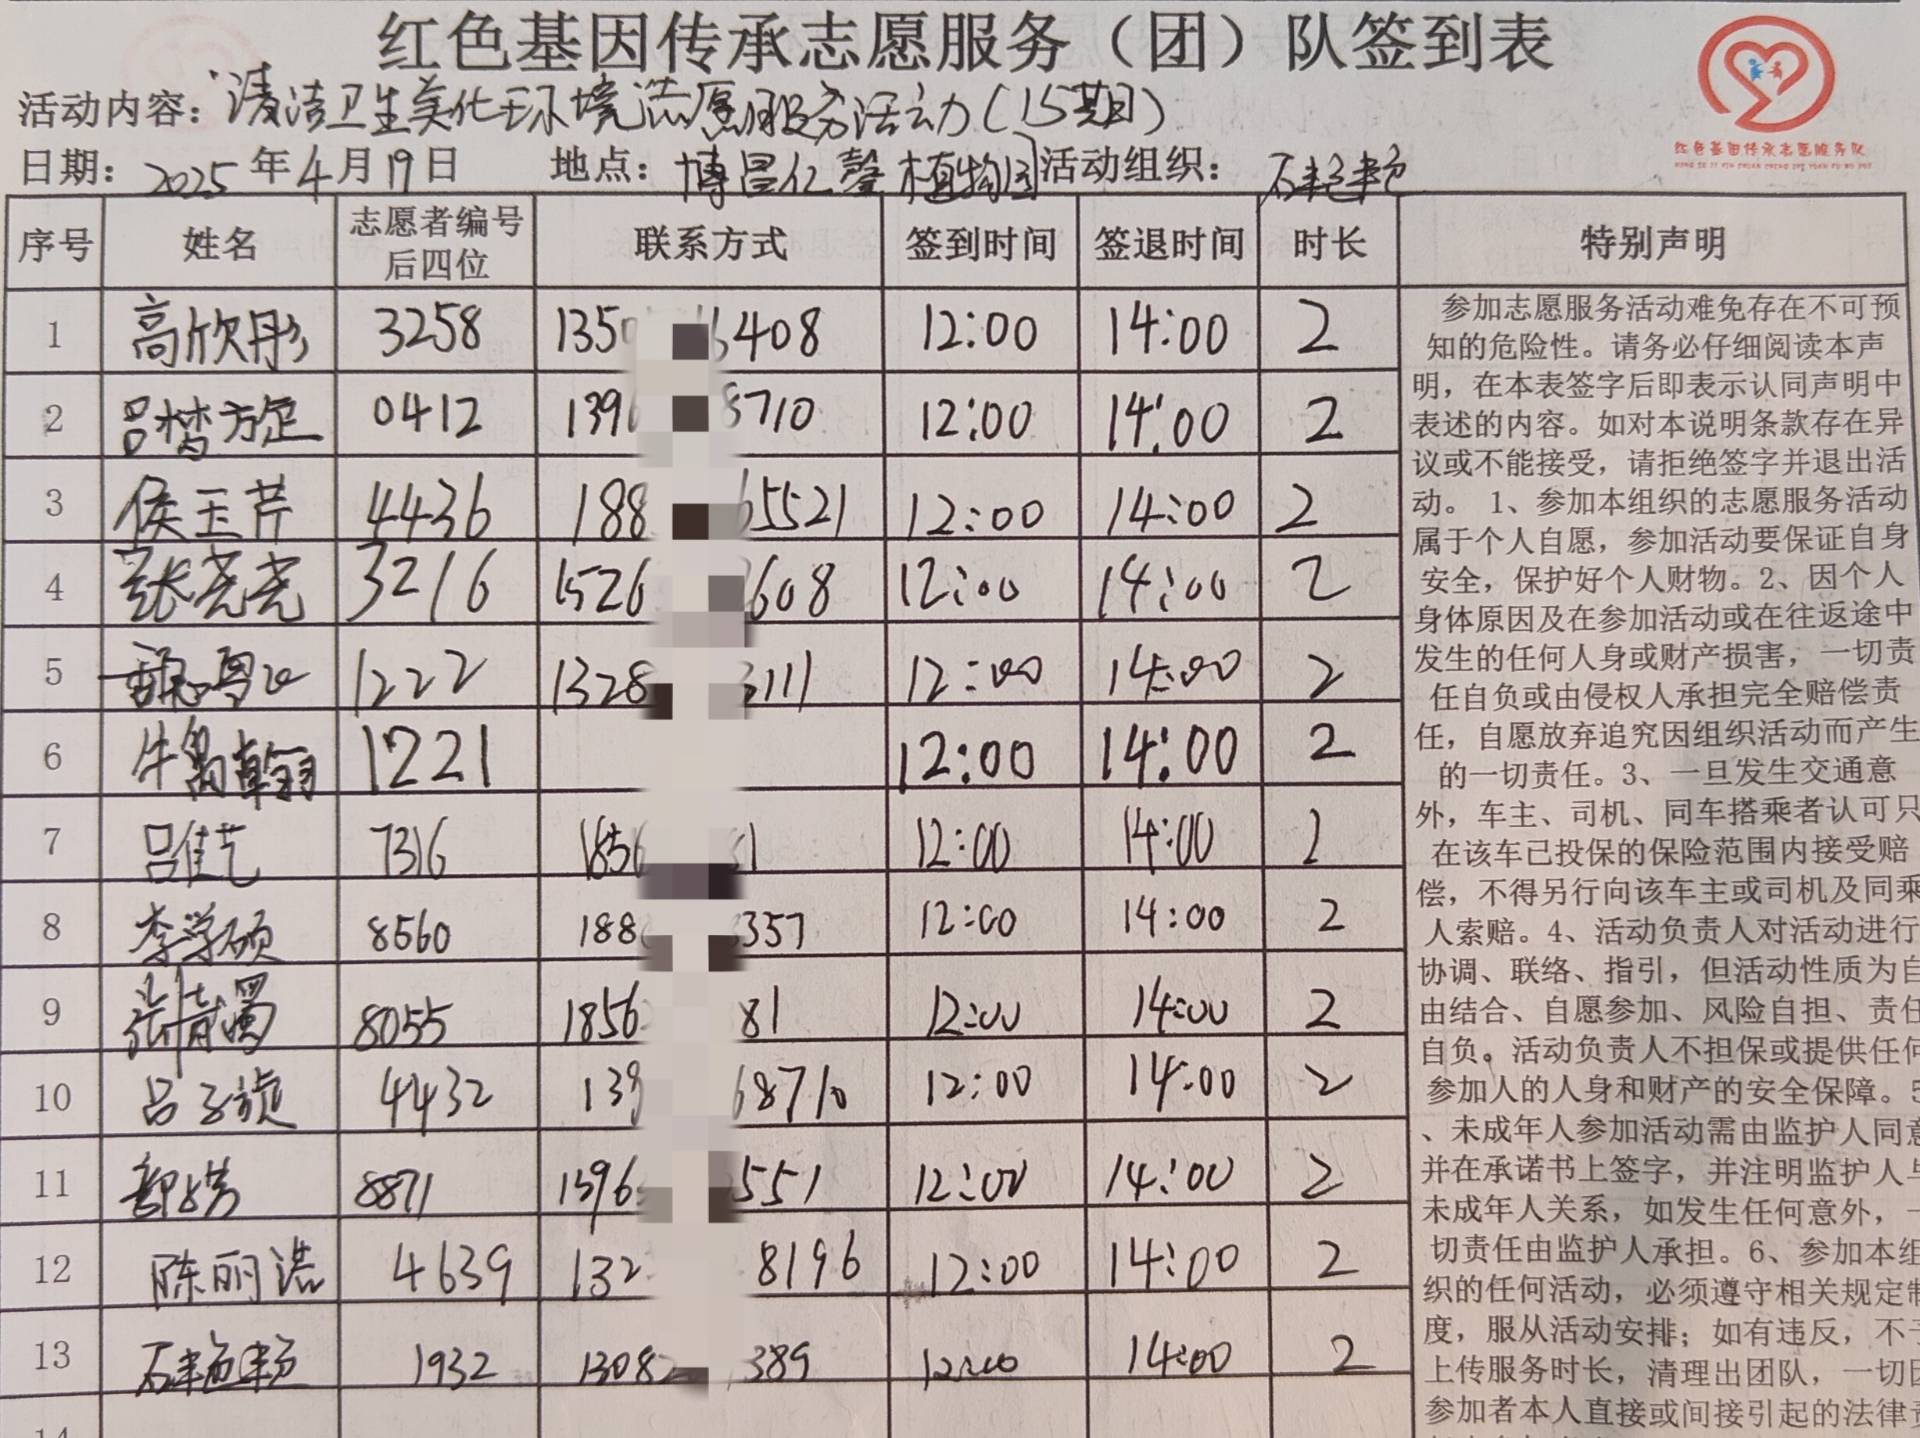 红色基因传承志愿服务（团）队签到表
红色基因传承志愿服务队
活动内容：清洁卫生美化环境志愿服务活动（15期）
日期：2025年4月19日 地点：博昌仁馨植物园 活动组织：石艳艳
序号 姓名 志愿者编号后四位 联系方式 签到时间 签退时间 时长 特别声明
1 高欣彤 3258 1350 6408 12:00 14:00 2
2 吕梦方 0412 139 8710 12:00 14:00 2
3 侯玉芹 4436 188 65521 12:00 14:00 2
4 张尧尧 3216 1526 608 12:00 14:00 2
5 1222 1328 3111 12:00 14:00 2
6 牛 翰 1221 12:00 14:00 2
7 吕佳艺 7316 1856 1 12:00 14:00 2
8 李学硕 8560 188 3357 12:00 14:00 2
9 张 8055 1856 81 12:00 14:00 2
10 吕子旋 4432 139 68710 12:00 14:00 2
11 8871 1396 551 12:00 14:00 2
12 陈丽洁 4639 132 8196 12:00 14:00 2
13 石艳艳 1932 13082 389 12:00 14:00 2
14
参加志愿服务活动难免存在不可预
知的危险性。请务必仔细阅读本声
明，在本表签字后即表示认同声明中
表述的内容。如对本说明条款存在异
议或不能接受，请拒绝签字并退出活
动。 1、参加本组织的志愿服务活动
属于个人自愿，参加活动要保证自身
安全，保护好个人财物。2、因个人
身体原因及在参加活动或在往返途中
发生的任何人身或财产损害，一切责
任自负或由侵权人承担完全赔偿责
任，自愿放弃追究因组织活动而产生
的一切责任。3、一旦发生交通意
外，车主、司机、同车搭乘者认可只
在该车已投保的保险范围内接受赔
偿，不得另行向该车主或司机及同乘
人索赔。4、活动负责人对活动进行
协调、联络、指引，但活动性质为自
由结合、自愿参加、风险自担、责任
自负。活动负责人不担保或提供任何
参加人的人身和财产的安全保障。5
、未成年人参加活动需由监护人同意
并在承诺书上签字，并注明监护人与
未成年人关系，如发生任何意外，一
切责任由监护人承担。6、参加本组
织的任何活动，必须遵守相关规定制
度，服从活动安排；如有违反，不予
上传服务时长，清理出团队，一切因
参加者本人直接或间接引起的法律责